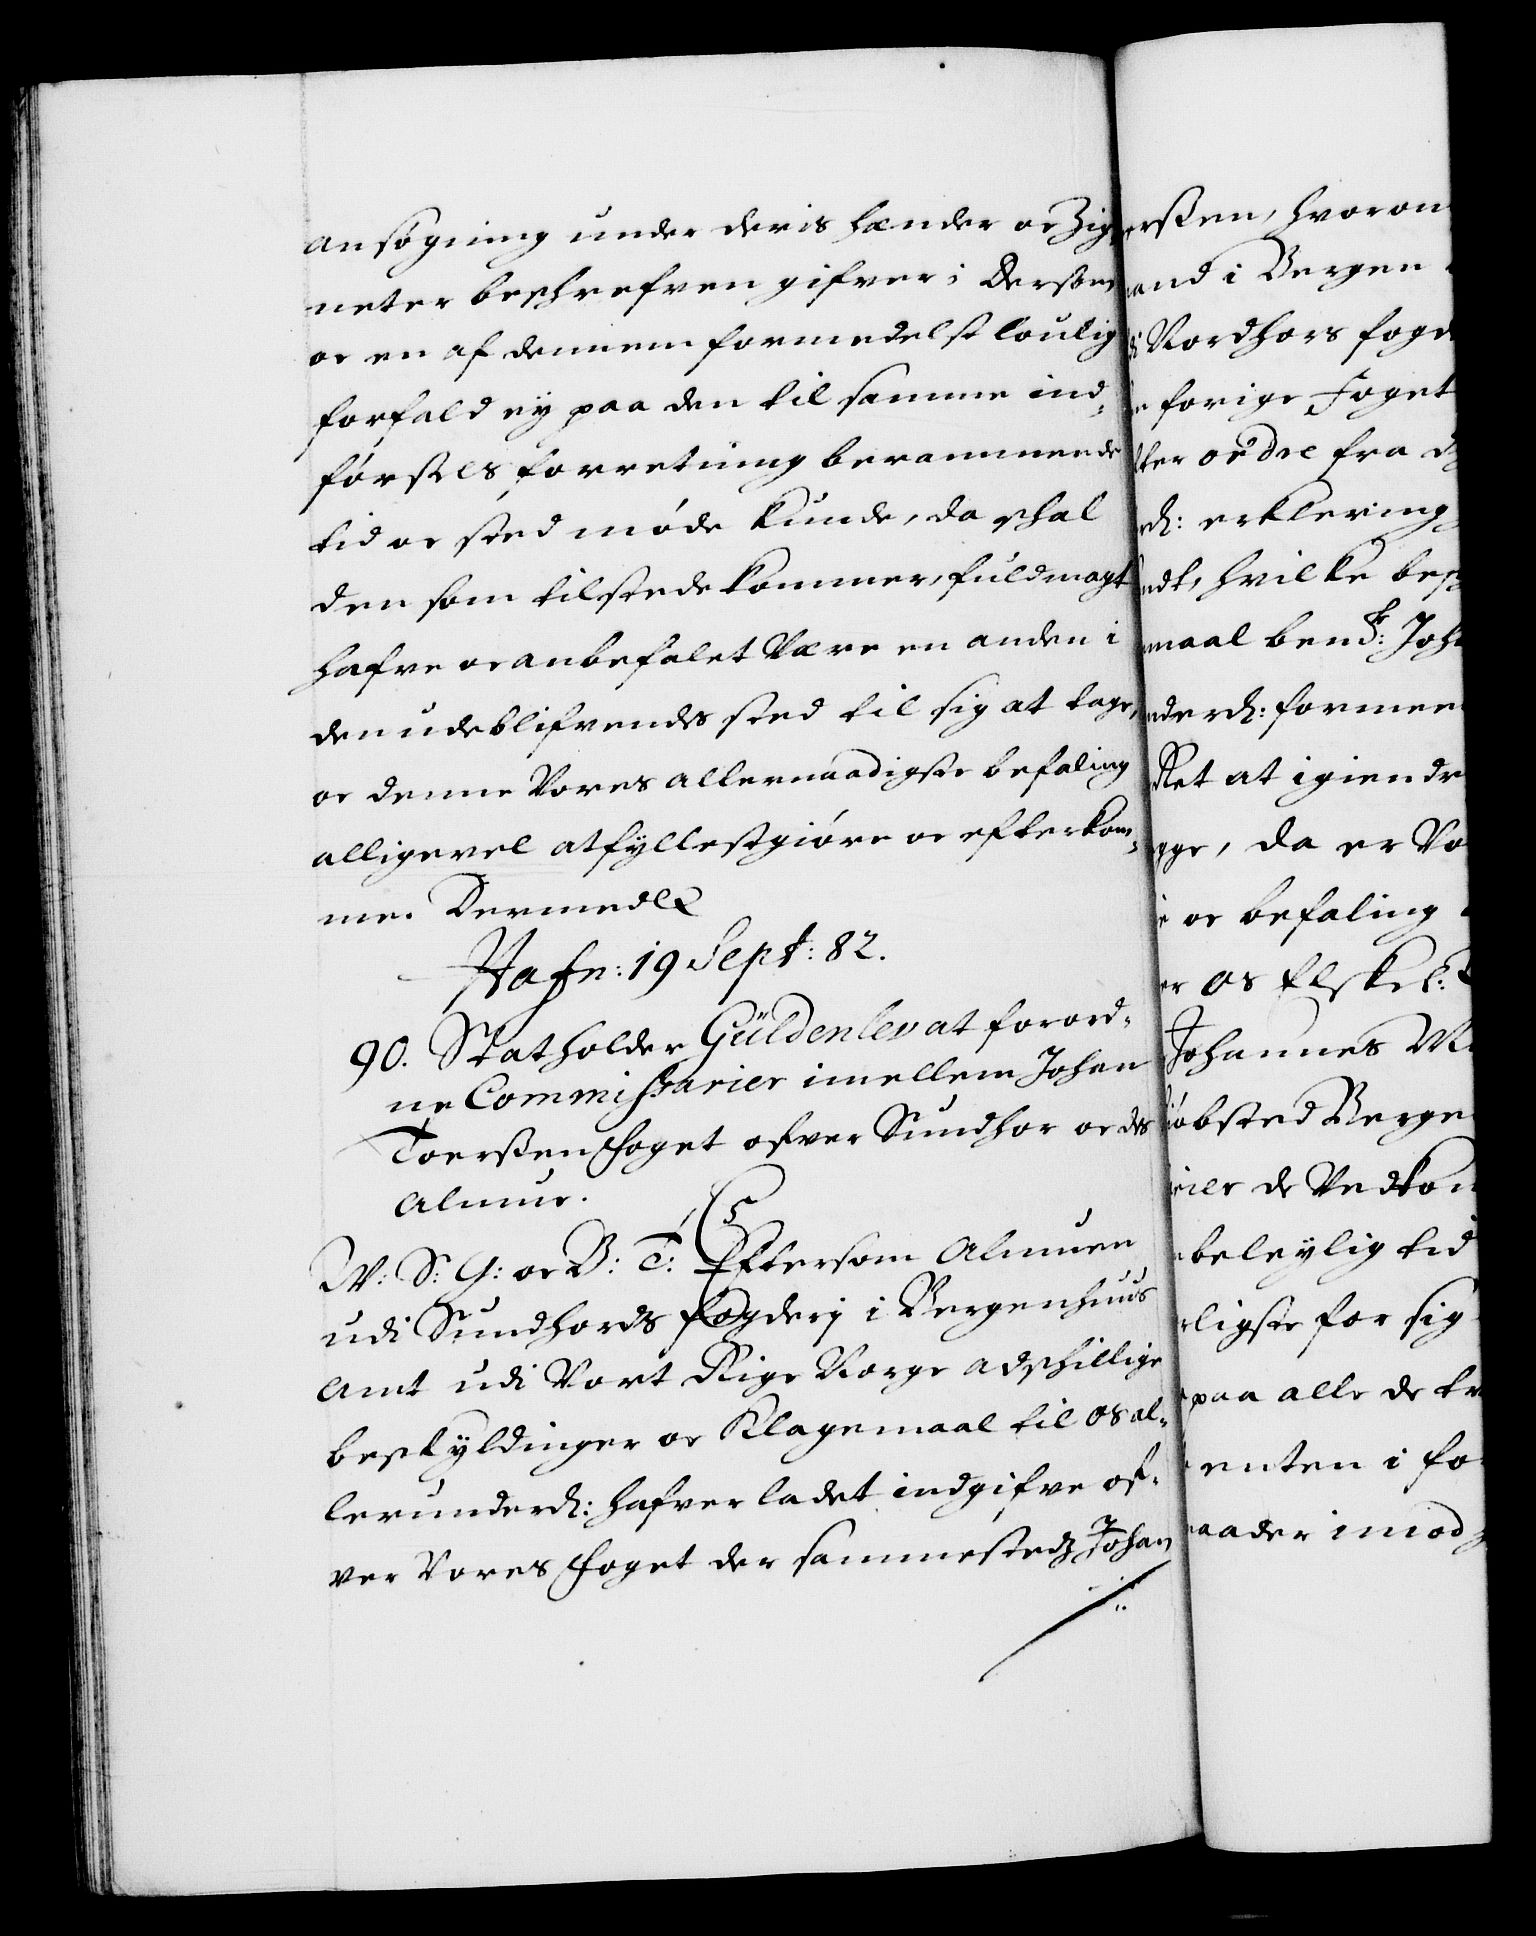 ansøgning under deris hænder oc Zig
neter beschrefven gifver i Dersom
oc en af dennem formedelst loulig
forfald ey paa den til samme ind-
førsels forretning berammende
tid oc sted møde kunde, da schal
den som tilstede kommer, fuldmagt
hafve oc anbefalet Være en anden i
den udeblifvendes sted til sig at tage,
oc denne Vores allernaadigste befaling
alligevel at fyllestgiøre oc efterkom-
me. Dermed
Hafn: 19 Sept: 82.
90. Statholder Güldenlev at forord-
ne Commissarier imellem Johan
Toerssen foget ofver Sundhor oc des
Almue.
W: S: G: oc B: T: Eftersom Almuen
udi Sundhords fogderj i Bergenhuus
Amt udi Vort Rige Norge adschillige
beskyldinger oc Klagemaal til os al-
lerunderd: hafver ladet indgifve of-
ver Vores foget der sammesteds Johan
erssen, hvorom
and i Bergen
di Nordhors fogd
forige Foget
fter ordre fra
rd: erklering
ndt, hvilke besk
maal bend: Joh
nderd: formeen
Ret at igiendr
gge, da er Vo
oc befaling
er os Elskel:
Johannes M
iøbsted Berge
rier de Vedkom
beleylig tid
rligste for sig
paa alle de
enten i fo
aader imod